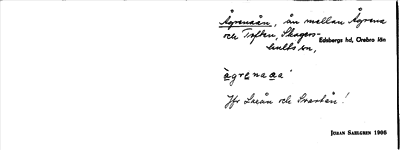 Ågrenaån, ån mellan Ågrena
och Toften, Skagers-
hults sn,
Edsbergs hd, Örebro län
àgrenaaa
Jfr Laxån och Svartån!
JOHAN SAHLGREN 1906